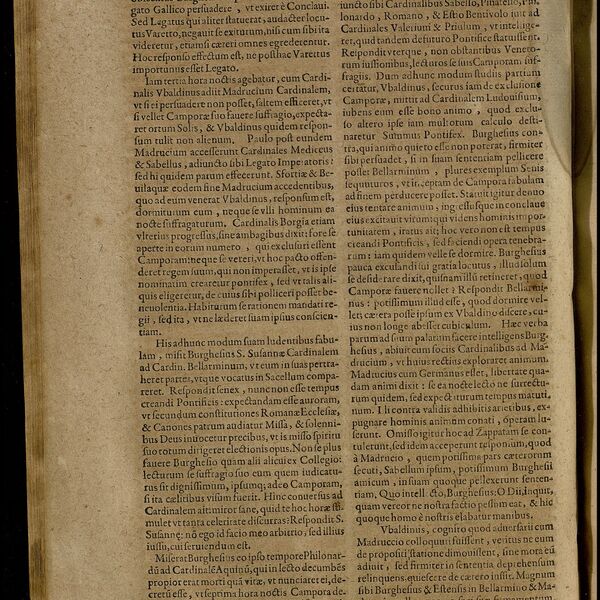 gato Gallico persuadere, vt exiret è Conclaui.
Sed Legatus qui aliter statuerat, audacter locu-
tus Varetto, negauit se exiturum, nisi cum sibi ita
videretur, etiamsi cæteri omnes egrederentur.
Hoc responso effectum est, ne posthac Varettus
importunus esset Legato.
Iam tertia hora noctis agebatur, cum Cardi-
nalis Vbaldinus adiit Madrucium Cardinalem,
vt si ei persuadere non posset, saltem efficeret, vt
si vellet Camporæ suo fauere suffragio, expecta-
ret ortum Solis, & Vbaldinus quidem respon-
sum tulit non alienum. Paulo post eundem
Madrucium accesserunt Cardinales Mediceus
& Sabellus, adiuncto sibi Legato Imperatoris:
sed hi quidem parum effecerunt. Sfortiæ & Be-
uilaquæ eodem fine Madrucium accedentibus,
quo ad eum venerat Vbaldinus, responsum est,
dormiturum eum, neque se vlli hominum ea
nocte suffragaturum. Cardinalis Borgia etiam
vlterius progressus, sine ambagibus dixit: fore se
aperte in eorum numero, qui exclusuri essent
Camporam: neque se veteri, vt hoc pacto offen-
deret regem suum, qui non imperasset, vt is ipse
nominatim crearetur pontifex, sed vt talis ali-
quis eligeretur, de cuius sibi polliceri posset be-
neuolentia. Habiturum se rationem mandati re-
gii, sed ita, vt ne læderet suam ipsus conscien-
tiam.
His adhunc modum suam ludentibus fabu-
lam, misit Burghesius S. Susannæ Cardinalem
ad Cardin. Bellarminum, vt eum in suas pertra-
heret partes, vtque vocatus in Sacellum compa-
reret. Respondit senex, nunc non esse tempus
creandi Pontificis: expectandam esse auroram,
vt secundum constitutiones Romanæ Ecclesiæ,
& Canones patrum audiatur Missa, & solenni-
bus Deus inuocetur precibus, vt is misso spiritu
suo totum dirigeret electionis opus. Non se plus
fauere Burghesio quam alii cuiui ex Collegio:
lecturum se suffragio suo eum quem iudicatu-
rus sit dignissimum, ipsumq; adeo Camporam,
si ita cælitibus visum fuerit. Hinc conuersus ad
Cardinalem ait: miror sane, quid te hoc horæ sti-
mulet vt tanta celeritate discurras? Respondit S.
Susannę: nō ego id facio meo arbitrio, sed illius
iussu, cui seruiendum est.
Miserat Burghesius eo ipso tempore Philonar-
dū ad Cardinalē Aquinū, qui in lecto decumbēs
propior erat morti quā vitæ, vt nunciaret ei, de-
cretū esse, vt septima hora noctis Campora de-
iuncto sibi Cardinalibus Sabello,
lonardo, Romano, & Estio Bentiuolo iuit ad
Cardinales Valerium & Priulum, vt intellige-
ret, quid tandem de futuro Pontifice statuissent.
Reipondit vterque, non obstantibus Veneto-
rum iussionibus, lecturos se iuis Camporam suf-
fragiis. Dum adhunc modum studiis partium
certatur, Vbaldinus, securus iam de exclusione
Camporæ, mittit ad Cardinalem Ludouisium,
iubens eum esse bono animo, quod exclu-
so altero ipse iam multorum calculo desti-
naretur Summus Pontifex. Burghesius con-
tra, qui animo quieto esse non poterat, firmiter
sibi persuadet, si in suam sententiam pellicere
posset Bellarminum, plures exemplum Senis
sequuturos, vt inceptam de Campora fabulam
ad finem perducere posset. Statuit igitur denuo
eius tentare animum, ingressusque in conclaue
eius excitauit virum: qui videns hominis impor-
tunitatem, iratus ait: hoc vero non est tempus
creandi Pontificis, sed faciendi opera tenebra-
rum: iam quidem velle se dormire. Burghesius
pauca excusandi sui gratia locutus, illud solum
se desiderare dixit, quis nam illū retineret, quod
Camporæ fauere nollet? Respondit Bellarmi-
nus: potissimum illud esse, quod dormire vel-
let, cætera posse ipsum ex Vbaldino discere, cu-
ius non longe abesset cubiculum. Hæc verba
parum ad suum palatum facere intelligens Burg-
hesius, abiuit cum sociis Cardinalibus ad Ma-
drucium, vt huius rectius exploraret animum.
Madrucius cum Germanus esset, libertate qua-
dam animi dixit: se ea nocte lecto ne surrectu-
rum quidem, sed expectiturum tempus matuti-
num. Ii contra validis adhibitis arietibus, ex-
pugnare hominis animum conati, operam lu-
serunt. Omisso igitur hoc ad Zappatam se con-
tulerunt, sed idem acceperunt responsum, quod
à Madrucio, quem potissima pars cæterorum
secuti, Sabellum ipsum, potissimum Burghesii
amicum, in suam quoque pellexerunt senten-
tiam, Quo intellecto, Burghesius: O Dii, inquit,
quam vereor ne nostra factio pessum eat, & hic
quoque homo è nostris elabatur manibus.
Vbaldinus, cognito quod aduersarii cum
Madruccio colloquuti fuissent, veritus ne eum
de proposito statione dimouissent, sine mora eū
adiuit, sed firmiter in sententia deprehensum
relinquens, quiescere de cætero iussit. Magnum
sibi Burghesius & Estensis in Bellarmino & Ma-